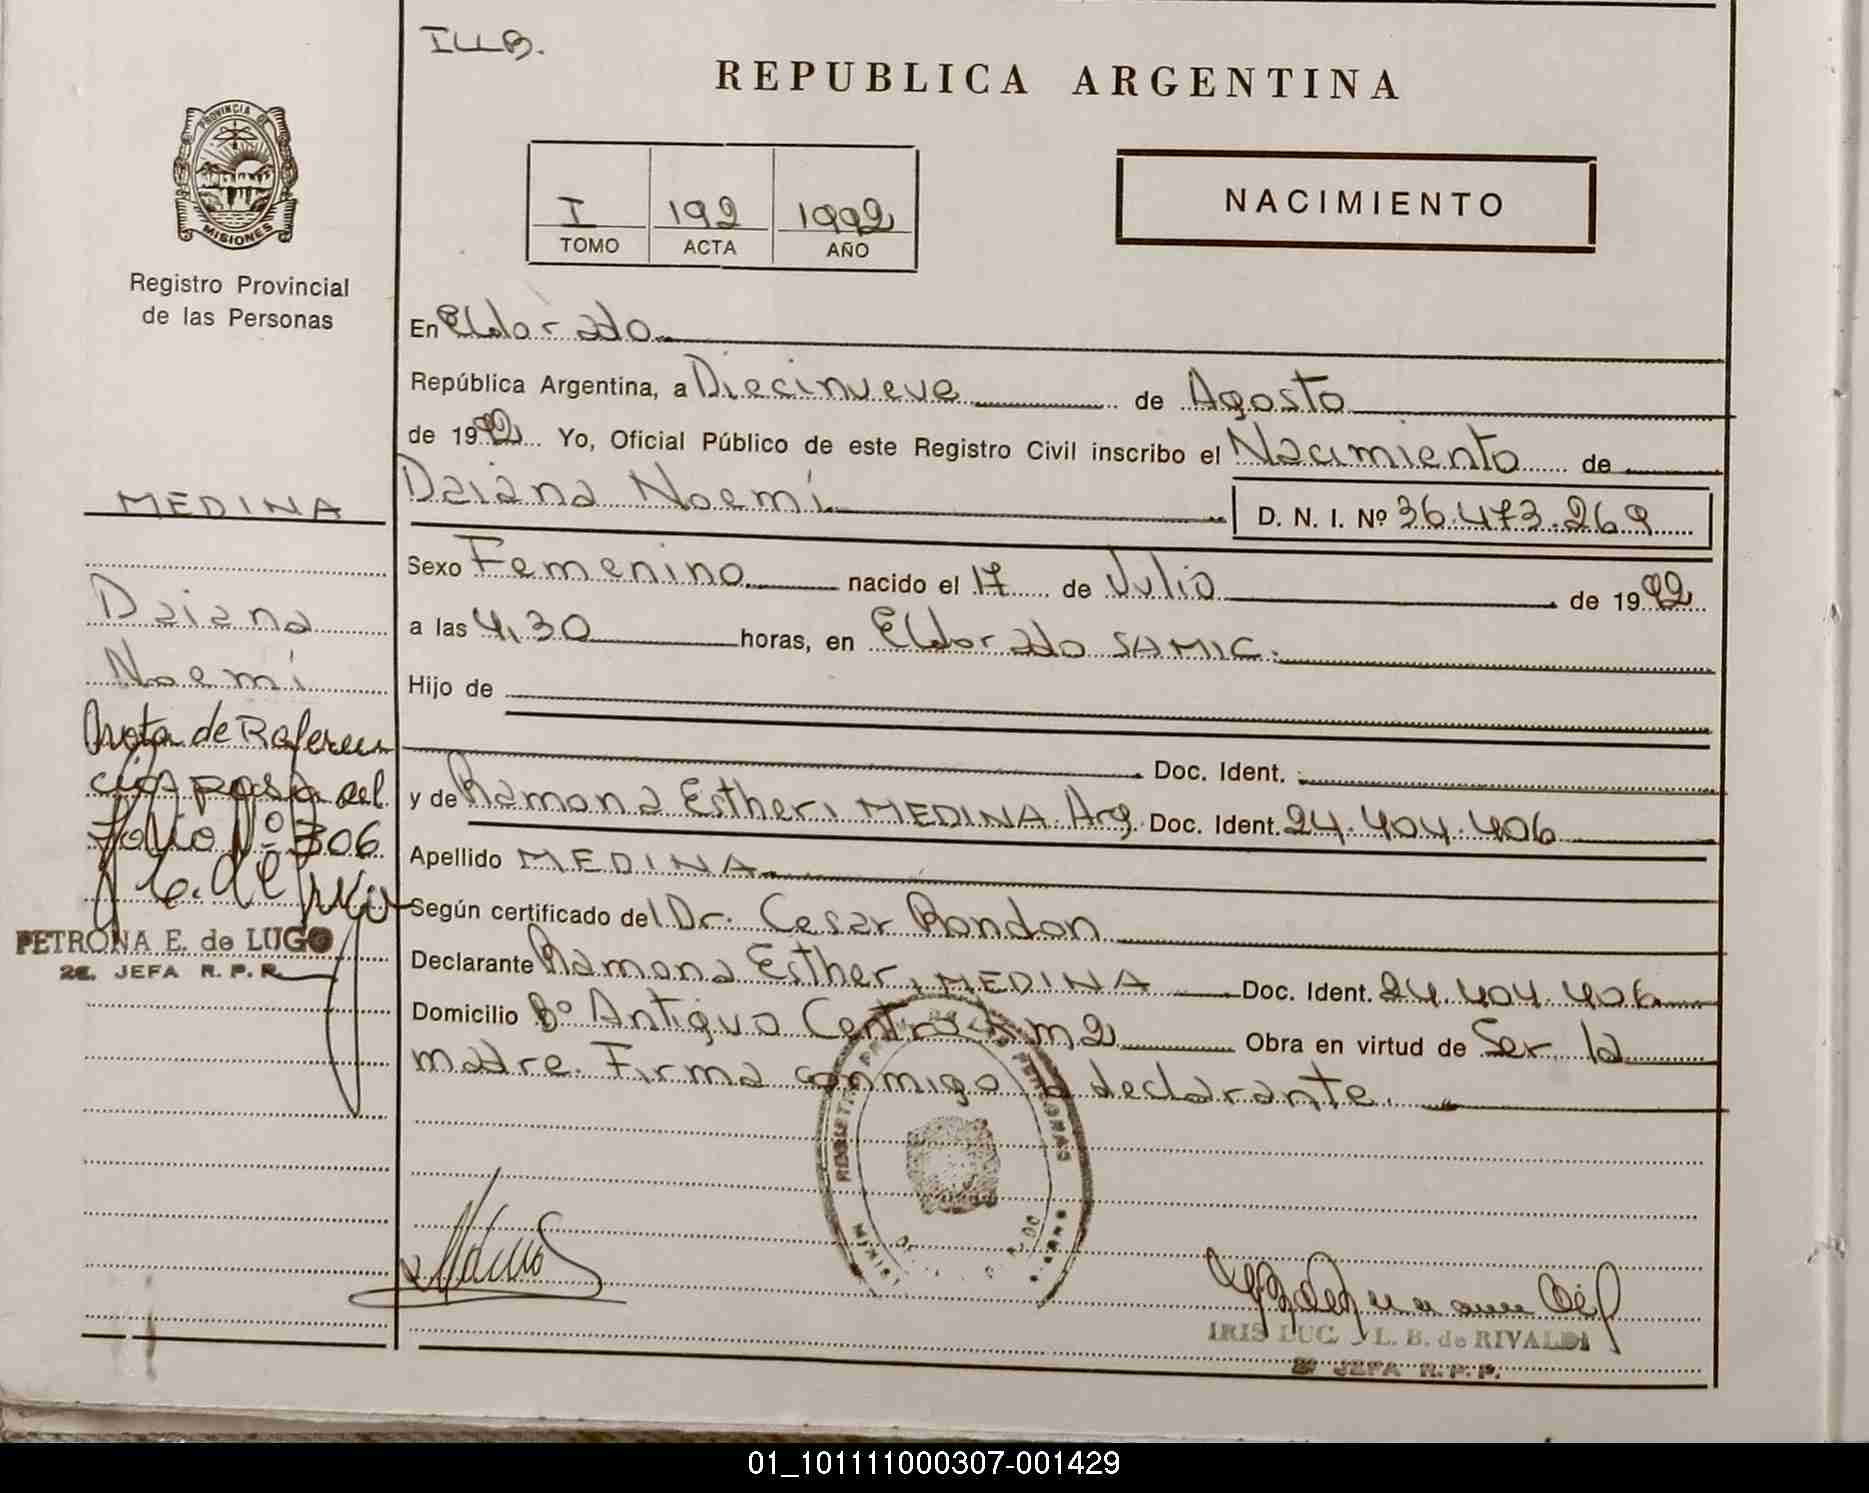 I.LL.B.
REPUBLICA ARGENTINA
PROVINCIA DE
MISIONES
Registro Provincial
de las Personas
I 192 1992
TOMO ACTA AÑO
NACIMIENTO
En Eldorado
República Argentina, a Diecinueve de Agosto
de 1992 Yo, Oficial Público de este Registro Civil inscribo el Nacimiento de
Daiana Noemí D. N. I. Nº 36.473.269
MEDINA
Daiana
Noemí
Nota de Referen
cia pasa al
Folio Nº 306
PETRONA E. de LUGO
2ª JEFA R. P. P.
Sexo Femenino nacido el 17 de Julio de 1992
a las 4,30 horas, en Eldorado SAMIC.
Hijo de
Doc. Ident.
y de Ramona Esther, MEDINA. Arg. Doc. Ident. 24.404.406
Apellido MEDINA
Según certificado del Dr. Cesar Rondon
Declarante Ramona Esther, MEDINA Doc. Ident. 24.404.406
Domicilio Bº Antiguo Centro Km 2 Obra en virtud de Ser la
madre. Firma conmigo la declarante.
IRIS LUC L. B. de RIVALDI
2ª JEFA R. P. P.
01_101111000307-001429